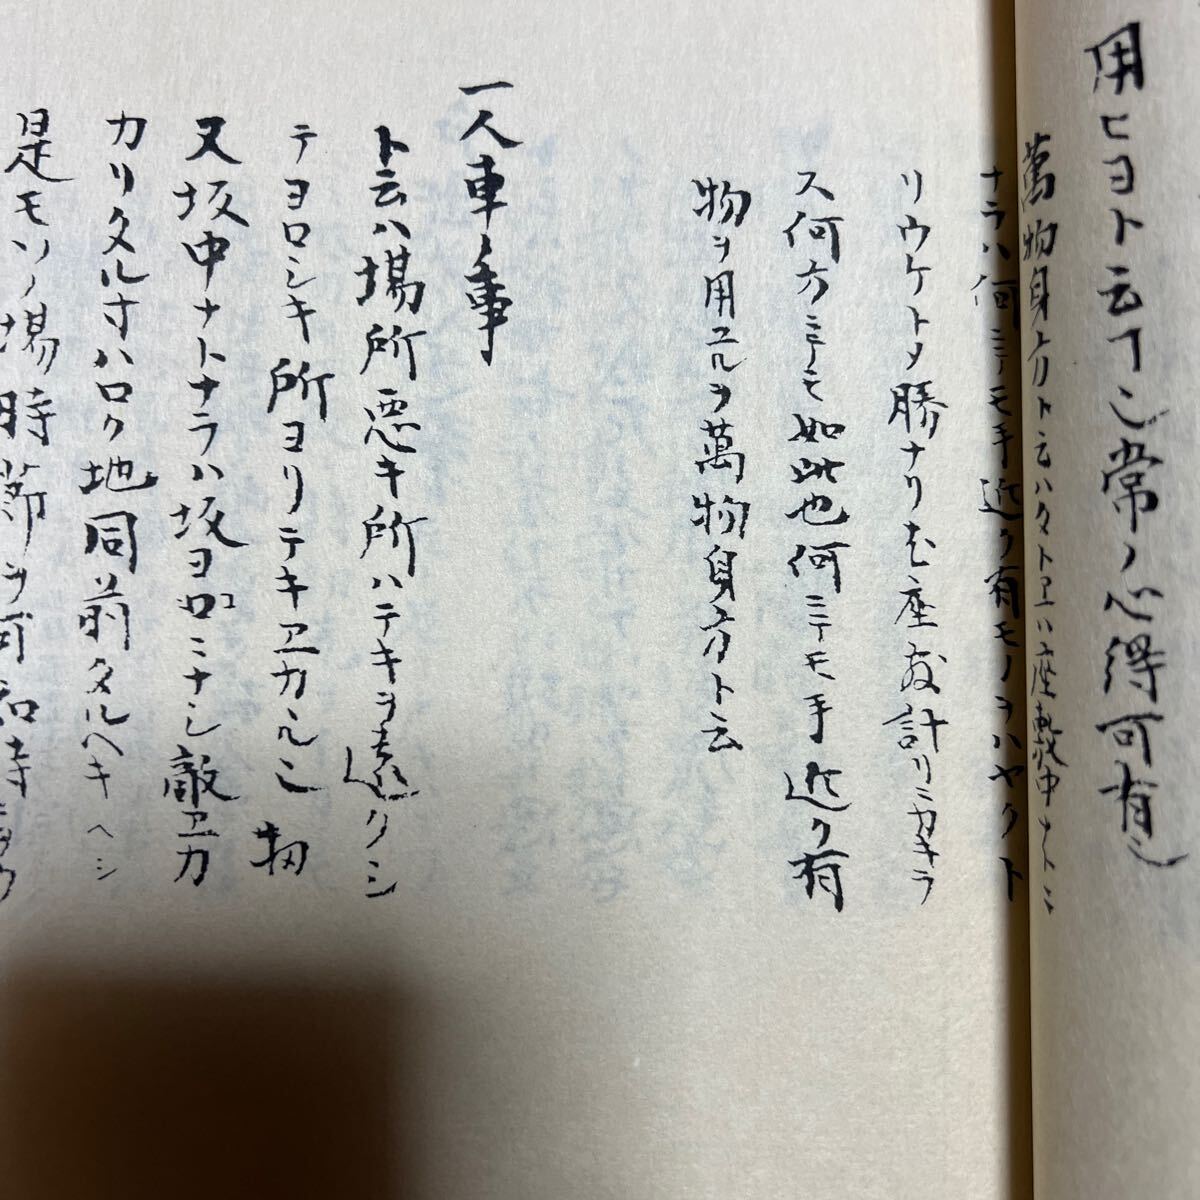 用ヒヨト云フコ常ノ心得可有シ
萬物身方ト云ハタトヱハ座敷中ナトニ
ナラハ何ニテモ手近ク有モノヲハヤクト
リウケトメ勝ナリ尤座敷計リニカキラ
ス何方ニテモ如此也何ニテモ手近ク有
物ヲ用ユルヲ萬物身方ト云
一人車ノ事
ト云ハ場所悪キ所ハテキヲ遠クシ
テヨロシキ所ヨリテキヱカルシ物
又坂中ナトナラハ坂ヨロコミナシ敵ヱカ
カリタル寸ハロク地同前タルヘキヘシ
是モソノ場時節ヲ可知